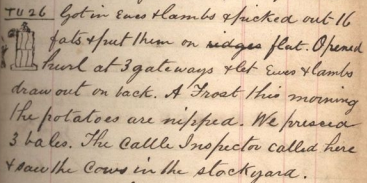 TU 26 Got in Ewes & lambs & picked out 16
fats & put them on ridges flat. Opened
hurl at 3 gateways & let Ewes & lambs
draw out on back. A Frost this morning
the potatoes are nipped. We pressed
3 bales. The Cattle Inspector called here
& saw the Cows in the stockyard.